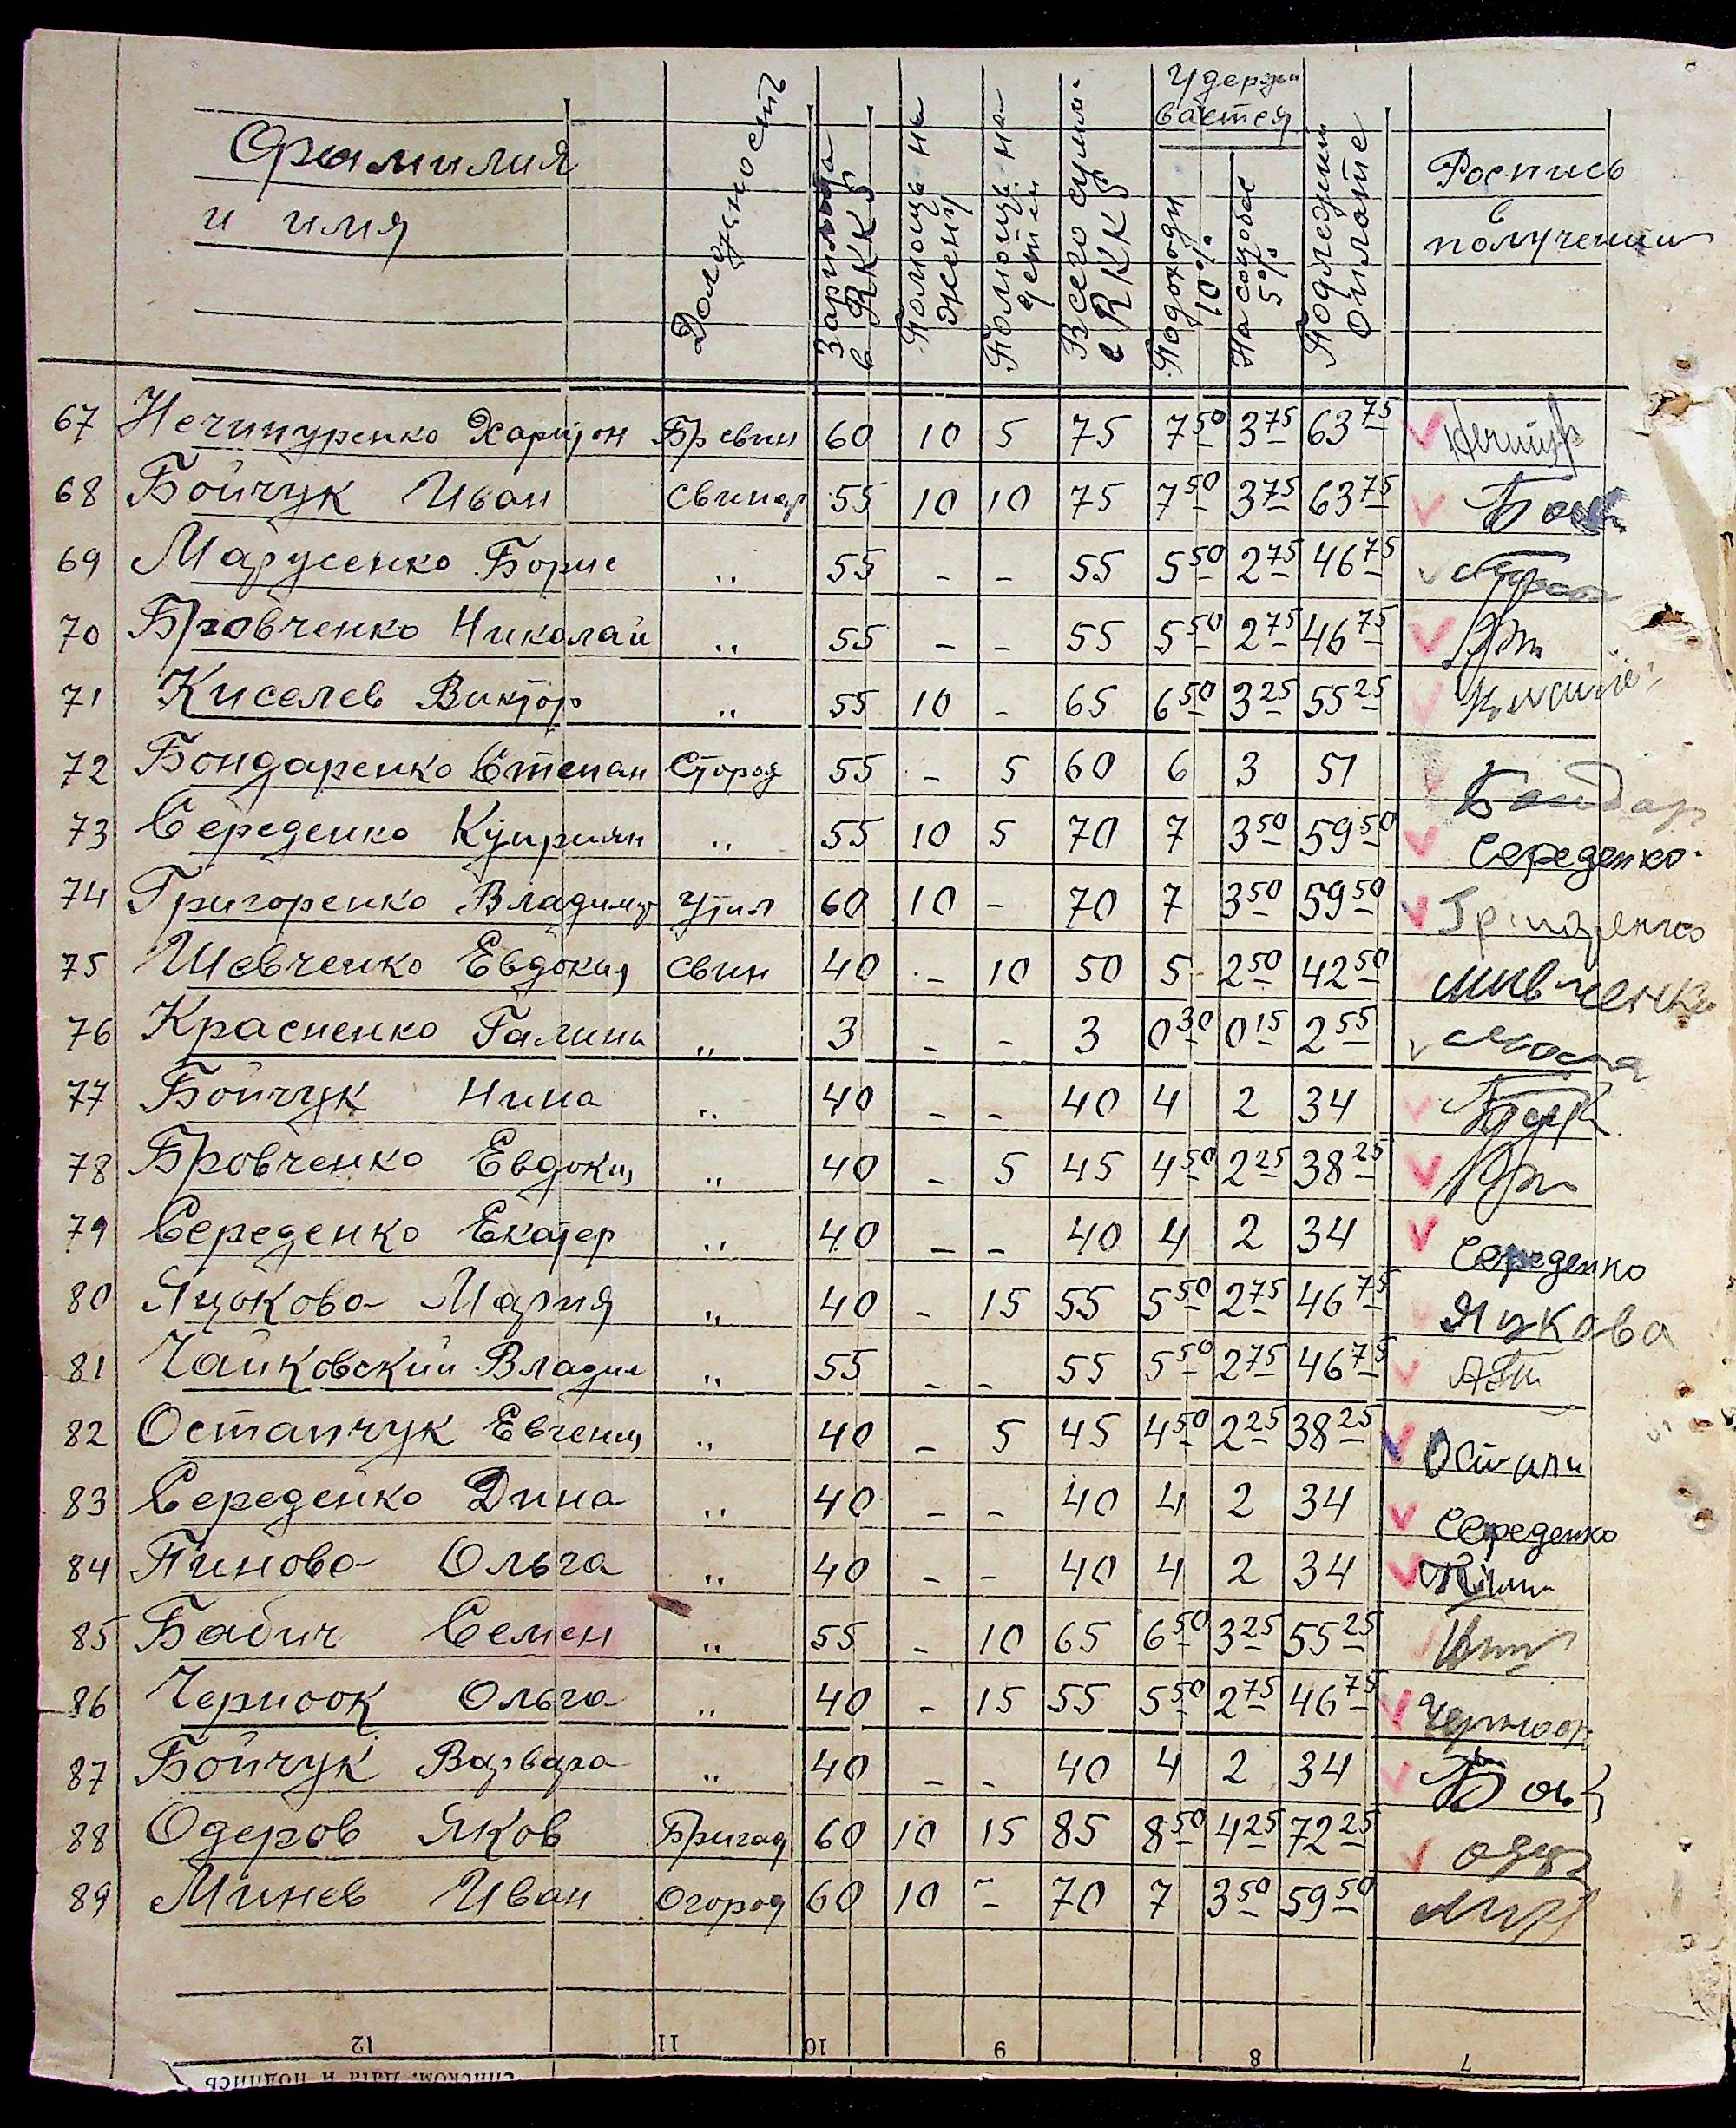 Фамилия и имя
Должность
Зарплата в RKKS
Помощь на жену
Помощь на детей
Всего сумм. с RKKS
Удерживается
Подоходн 10%
На соцобес 5%
Подлежит оплате
Роспись в получении
67 Нечипуренко Харитон Бр свин 60 10 5 75 7 50 3 75 63 75 Нечипур
68 Бойчук Иван свинар 55 10 10 75 7 50 3 75 63 75
69 Марусенко Борис " 55 - - 55 5 50 2 75 46 75
70 Бровченко Николай " 55 - - 55 5 50 2 75 46 75
71 Киселев Виктор " 55 10 - 65 6 50 3 25 55 25
72 Бондаренко Степан Сторож 55 - 5 60 6 3 51 Бондар
73 Середенко Куприян " 55 10 5 70 7 3 50 59 50 Середенко
74 Григоренко Владимир 60 10 - 70 7 3 50 59 50
75 Шевченко Евдокия свин 40 - 10 50 5 2 50 42 50
76 Красненко Галина " 3 - - 3 0 30 0 15 2 55
77 Бойчук Нина " 40 - - 40 4 2 34
78 Бровченко Евдокия " 40 - 5 45 4 50 2 25 38 25
79 Середенко Екатер " 40 - - 40 4 2 34 Середенко
80 Яцюкова Мария " 40 - 15 55 5 50 2 75 46 75 Яцкова
81 Чайковский Владим " 55 - - 55 5 50 2 75 46 75
82 Остапчук Евгения " 40 - 5 45 4 50 2 25 38 25
83 Середенко Дина " 40 - - 40 4 2 34 Середенко
84 Пинова Ольга " 40 - - 40 4 2 34
85 Бабич Семен " 55 - 10 65 6 50 3 25 55 25
86 Черноок Ольга " 40 - 15 55 5 50 2 75 46 75 Черноок
87 Бойчук Варвара " 40 - - 40 4 2 34
88 Одеров Яков Бригад 60 10 15 85 8 50 4 25 72 25
89 Минев Иван Огород 60 10 - 70 7 3 50 59 50
12 11 10 9 8 7
списком. Дата и подпись